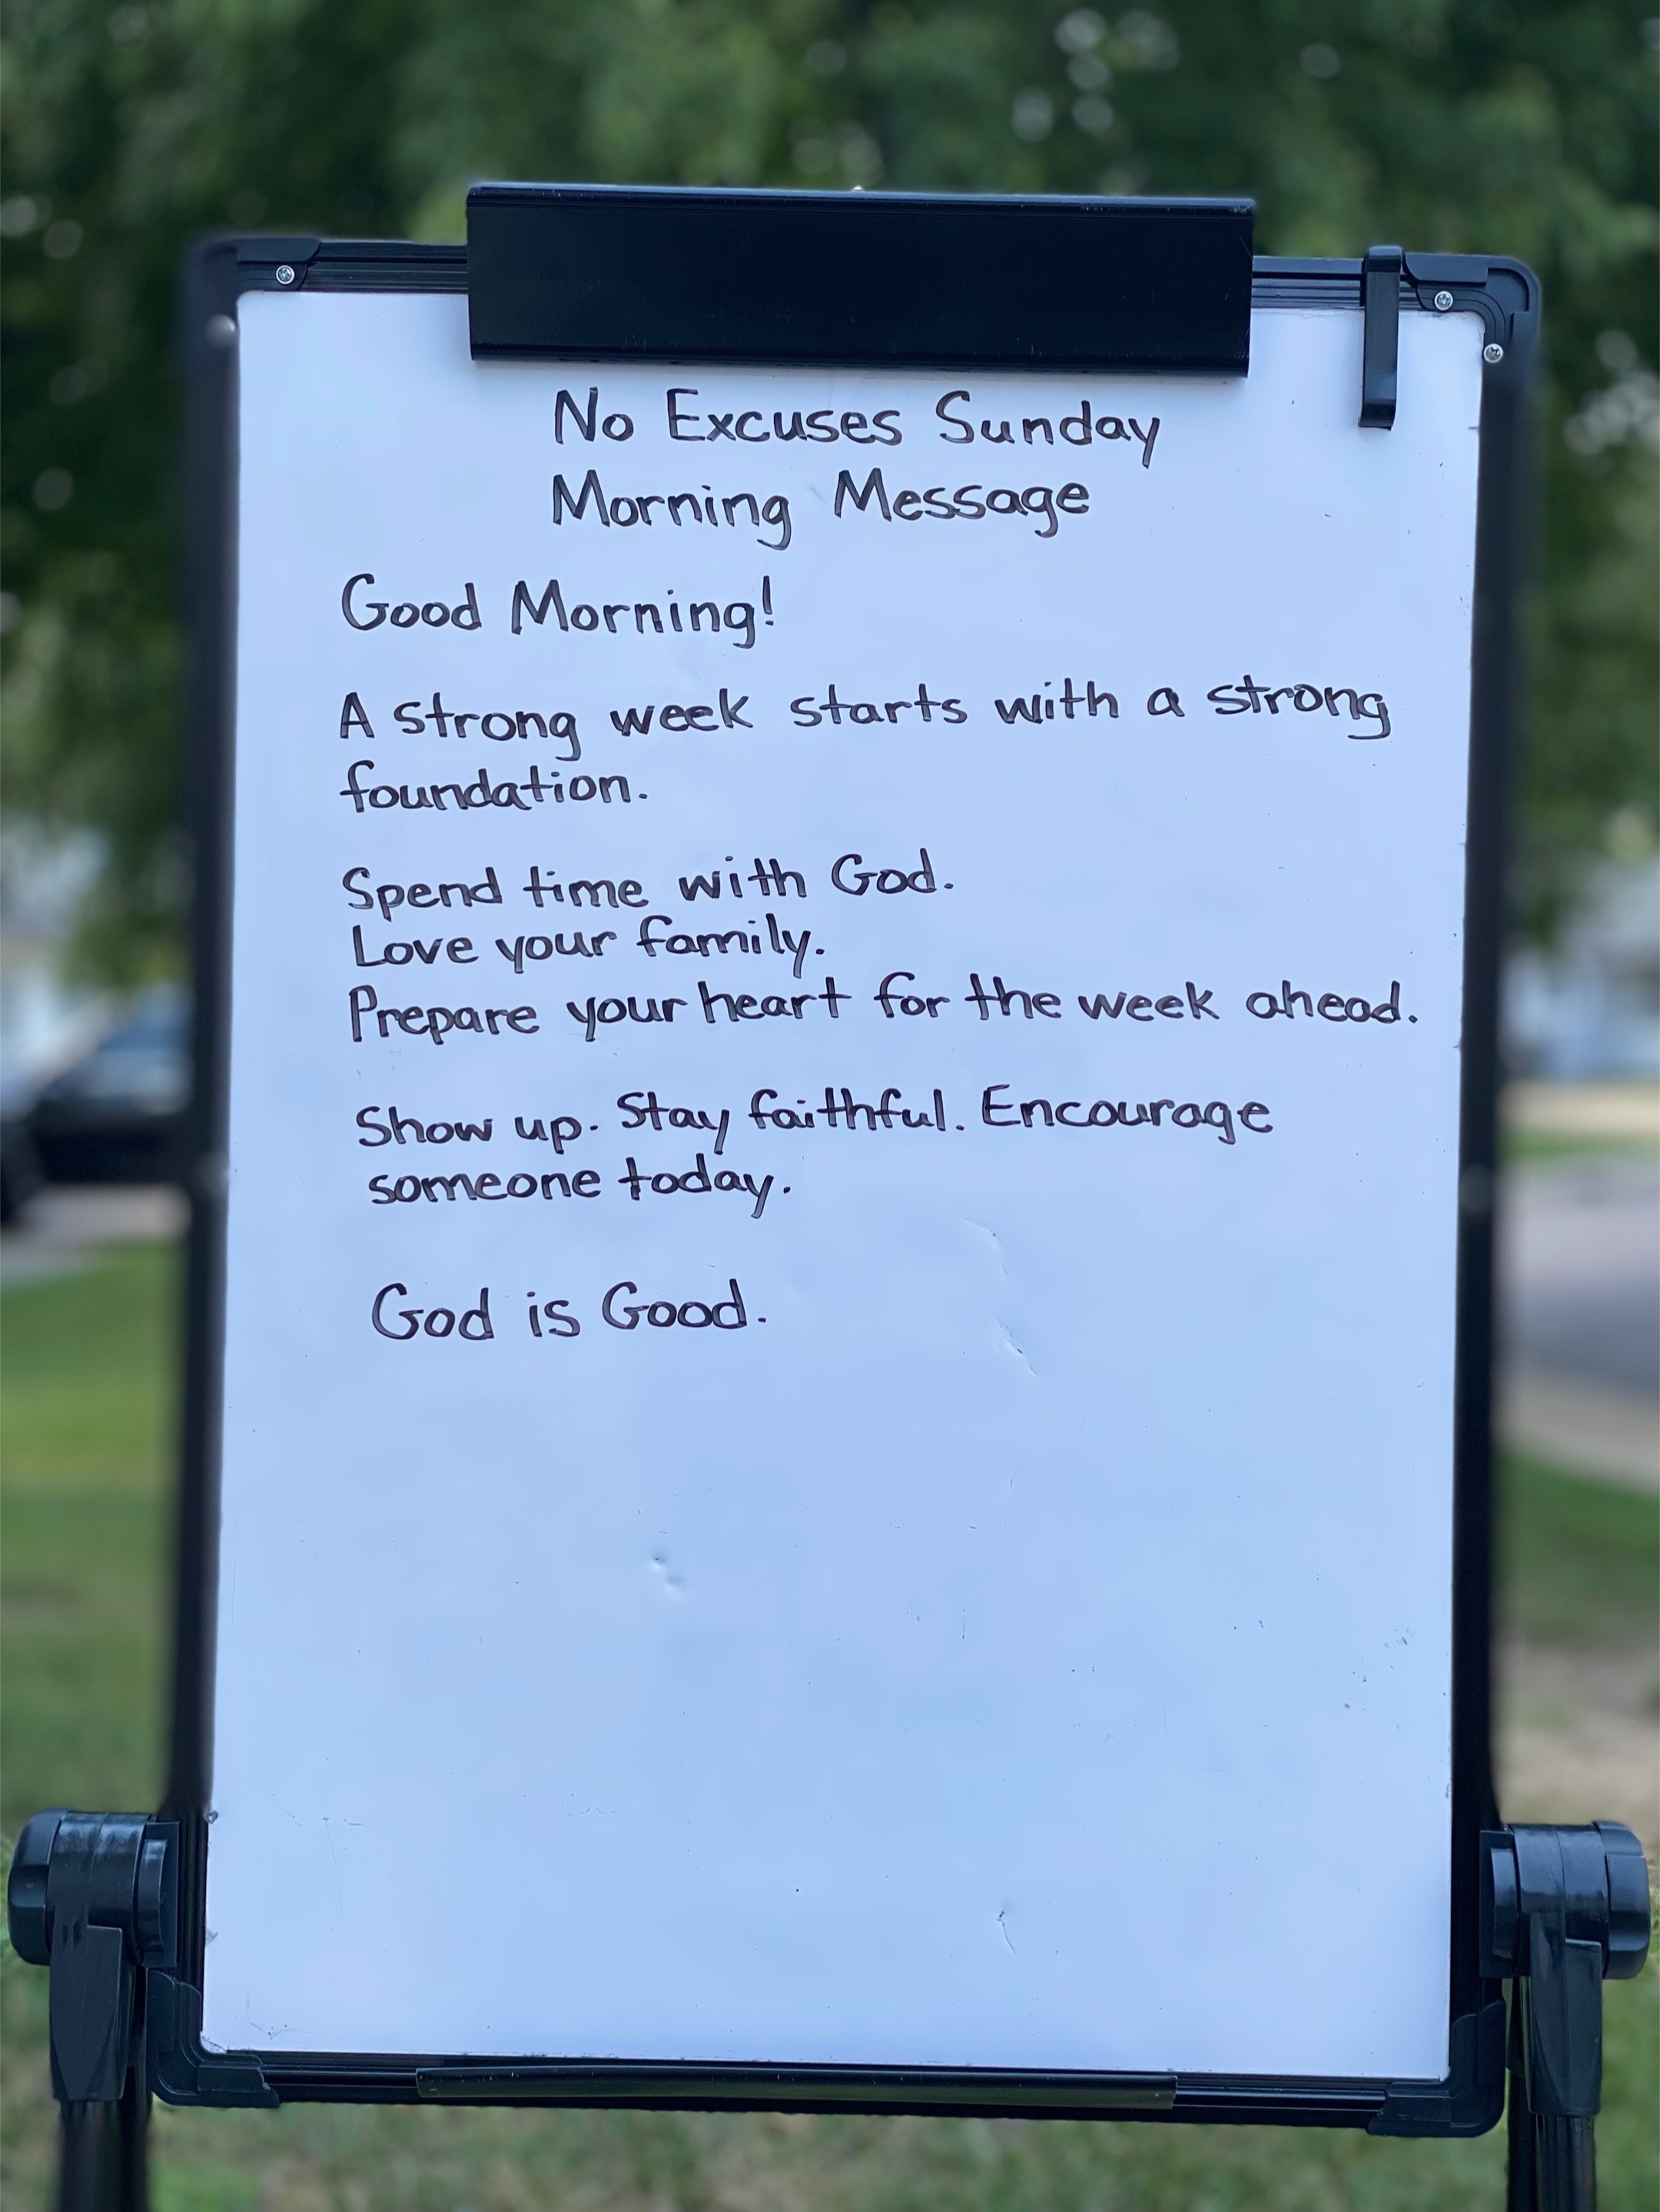 No Excuses Sunday
Morning Message
Good Morning!
A strong week starts with a strong
foundation.
Spend time with God.
Love your family.
Prepare your heart for the week ahead.
Show up. Stay faithful. Encourage
someone today.
God is Good.